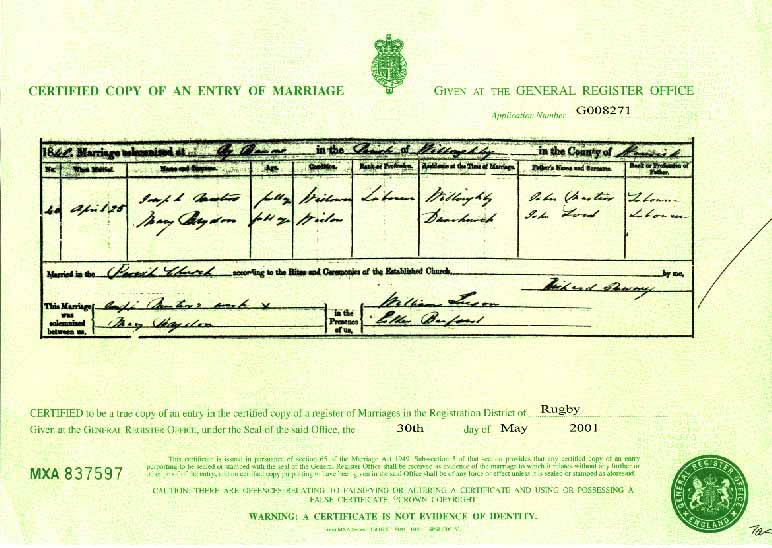 CERTIFIED COPY OF AN ENTRY OF MARRIAGE
GIVEN AT THE GENERAL REGISTER OFFICE
Application Number G008271
Marriage solemnized at By Banns in the Parish of Willoughby in the County of Warwick
No. When Married. Name and Surname. Age. Condition. Rank or Profession. Residence at the Time of Marriage. Father's Name and Surname. Rank or Profession of Father.
40 April 25 Joseph Masters full age Widower Labourer Willoughby John Masters Labourer
Mary Haydon full age Widow Dunchurch John Labourer
Married in the Parish Church according to the Rites and Ceremonies of the Established Church, by me,
Richard
This Marriage was solemnized between us,
Masters mark x
Mary Haydon
in the Presence of us,
William
Esther
CERTIFIED to be a true copy of an entry in the certified copy of a register of Marriages in the Registration District of Rugby
Given at the GENERAL REGISTER OFFICE, under the Seal of the said Office, the 30th day of May 2001
MXA 837597
This certificate is issued in pursuance of section 65 of the Marriage Act 1949. Sub-section 3 of that section provides that any certified copy of an entry
purporting to be sealed or stamped with the seal of the General Register Office shall be received as evidence of the marriage to which it relates without any further or
other proof of the entry, and no certified copy purporting to have been given in the said Office shall be of any force or effect unless it is sealed or stamped as aforesaid.
CAUTION: THERE ARE OFFENCES RELATING TO FALSIFYING OR ALTERING A CERTIFICATE AND USING OR POSSESSING A
FALSE CERTIFICATE. ©CROWN COPYRIGHT
WARNING: A CERTIFICATE IS NOT EVIDENCE OF IDENTITY.
GENERAL REGISTER OFFICE
ENGLAND